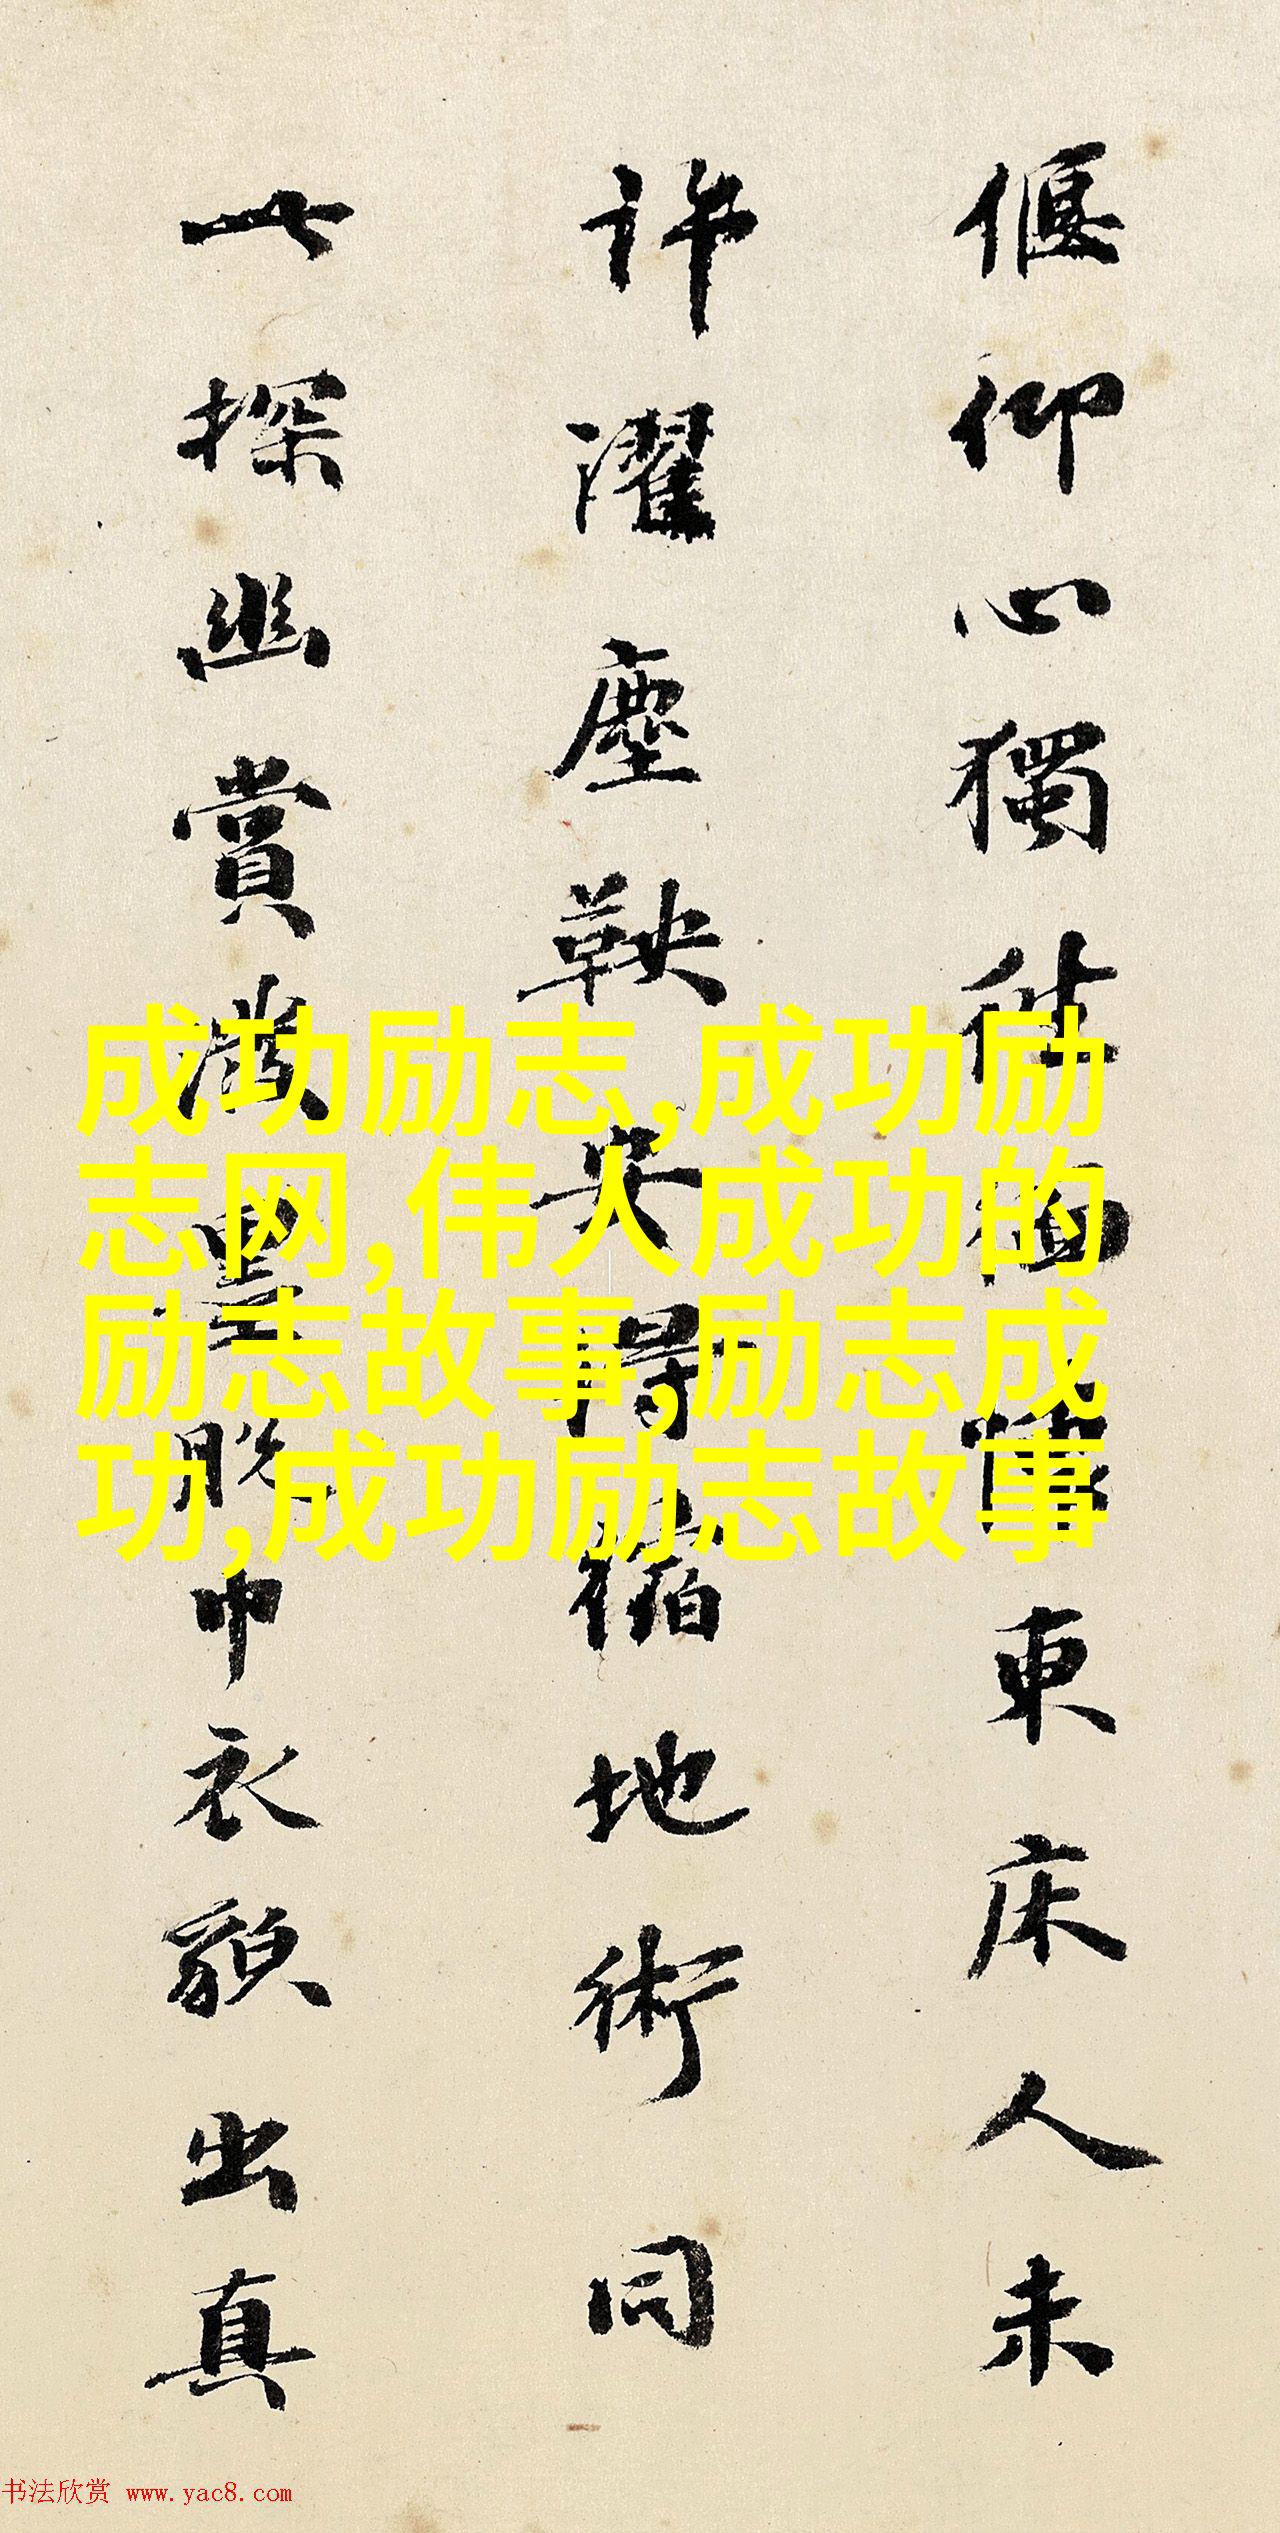 偃仰心獨往緬懷東床人未
許濯塵鞅安得縮地術同
一探幽賞激豐肌巾衣貌出真
成功励志,成功励
志网,伟人成功的
励志故事,励志成
功,成功励志故事
书法欣赏 www.yac8.com